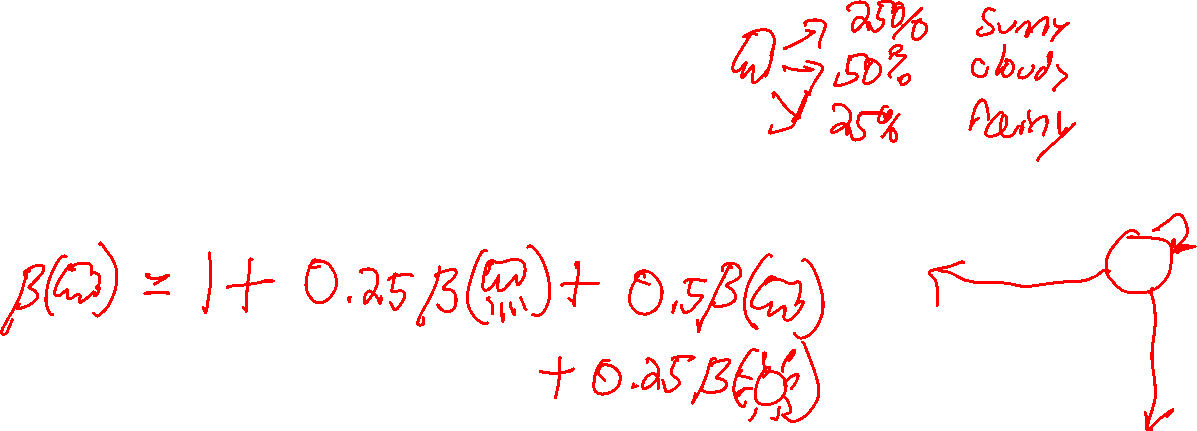 25% Sunny
50% cloudy
25% Rainy
β(☁) = 1 + 0.25 β(🌧) + 0.5 β(☁)
+ 0.25 β(☀)